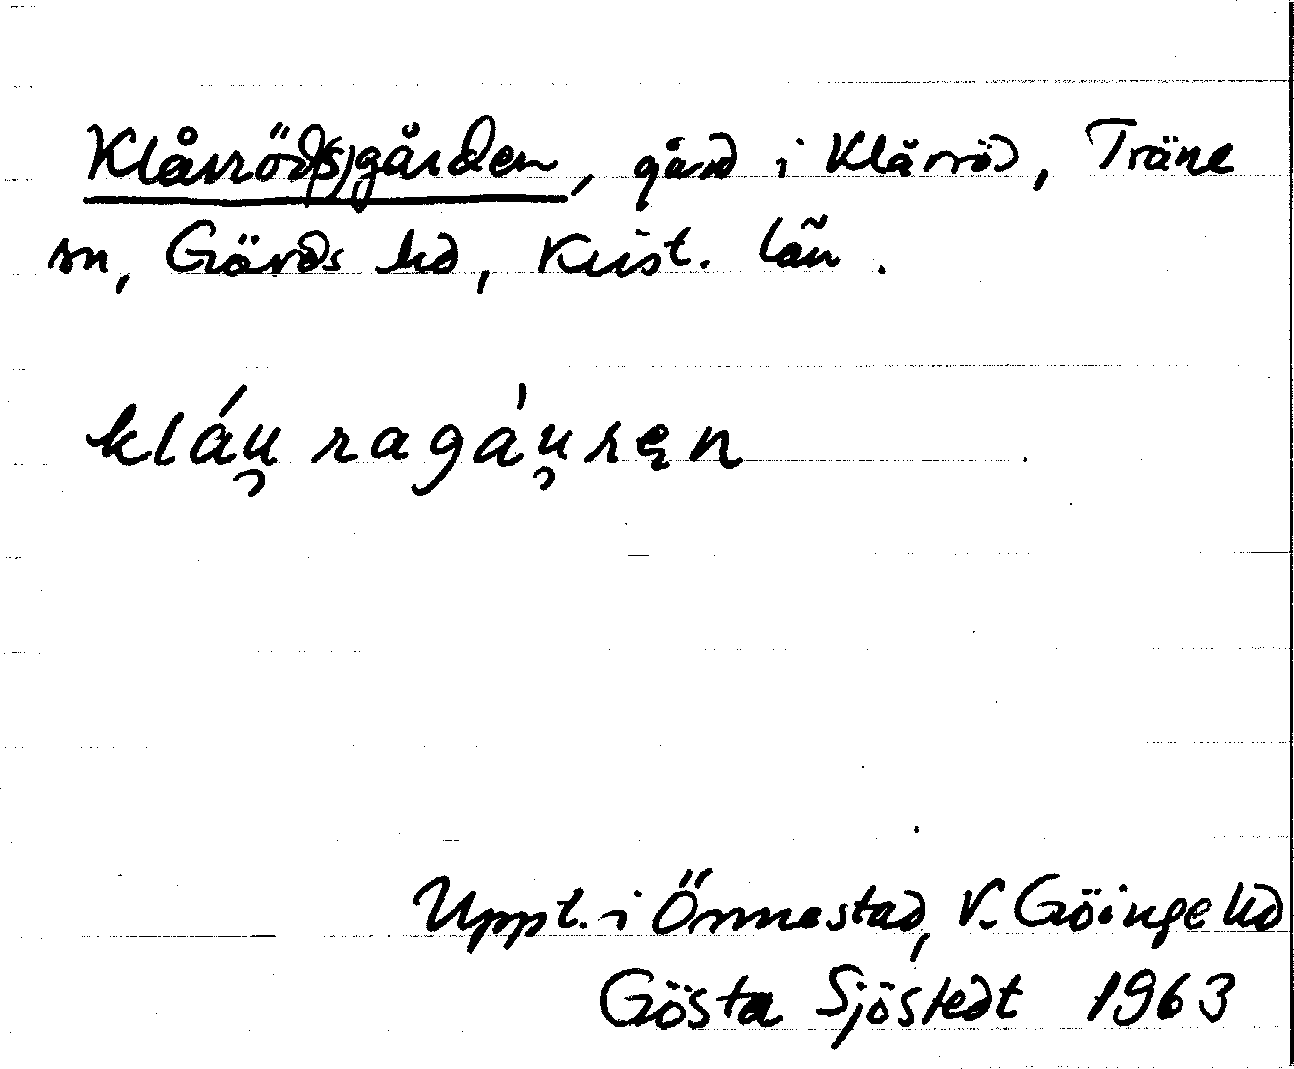 Klårröd(s)gården, gård i Klårröd, Träne
sn, Gärds hd, Krist. län.
kláu̯ ragáu̯ ręn
Uppt. i Önnestad, V. Göinge hd
Gösta Sjöstedt 1963